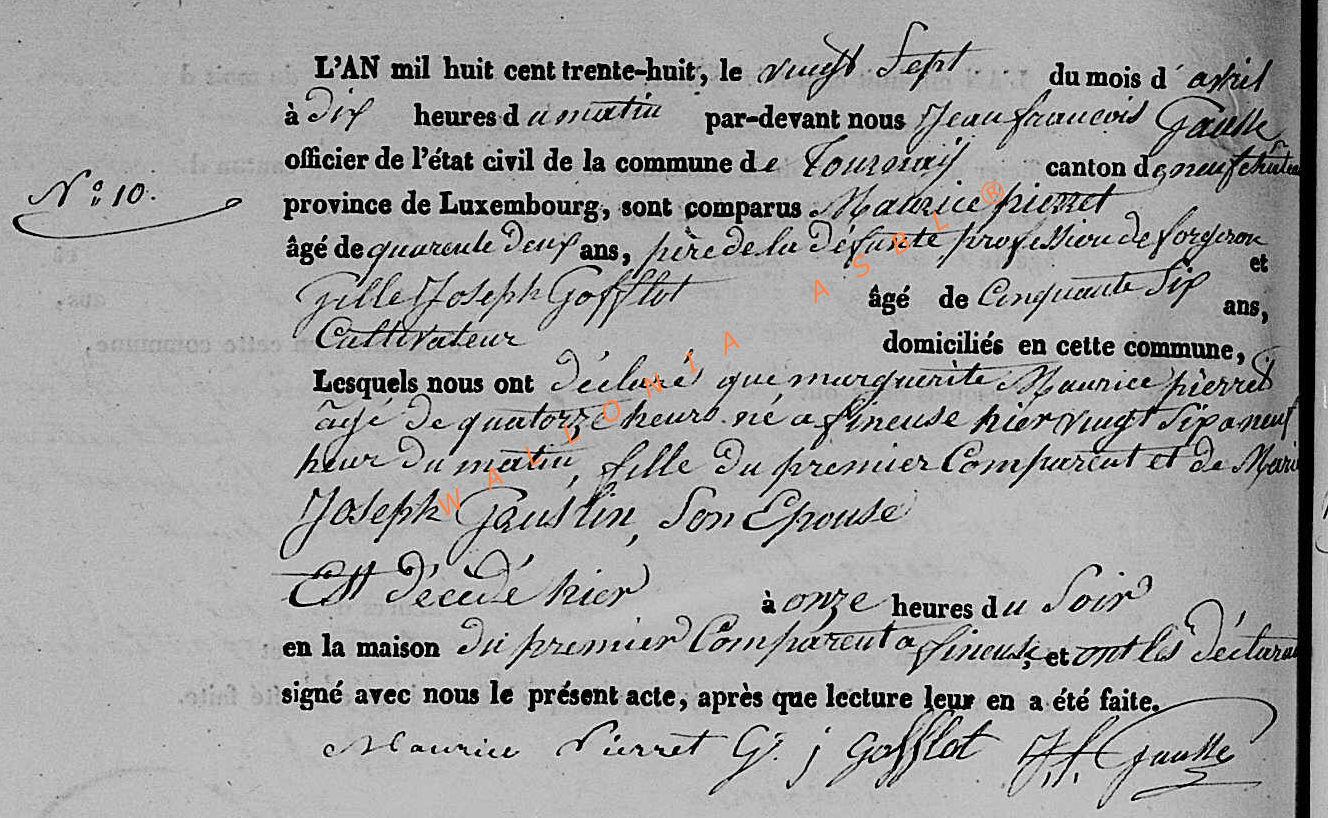 L'AN mil huit cent trente-huit, le vingt Sept du mois d'avril
à Dix heures du matin par-devant nous Jean francois Gausse
officier de l'état civil de la commune de Tournay canton de neufchateau
N.o 10.
province de Luxembourg, sont comparus Maurice pierret
âgé de quarente deux ans, père de la défunte profession de forgeron
et
Gille Joseph Gofflot âgé de Cinquante Six ans,
Cultivateur domiciliés en cette commune,
Lesquels nous ont déclaré que marguerite Maurice pierret
agé de quatorze heurs né a fineuse hier vingt Six a neuf
heur du matin, fille du premier Comparent et de Marie
Joseph Gaustin, Son Epouse
Est décédé hier à onze heures du Soir
en la maison du premier Comparent a fineuse, et ont les déclarans
signé avec nous le présent acte, après que lecture leur en a été faite.
Maurice Pierret G. j Gofflot J. f. Gausse
WALDONIA ASBL ®